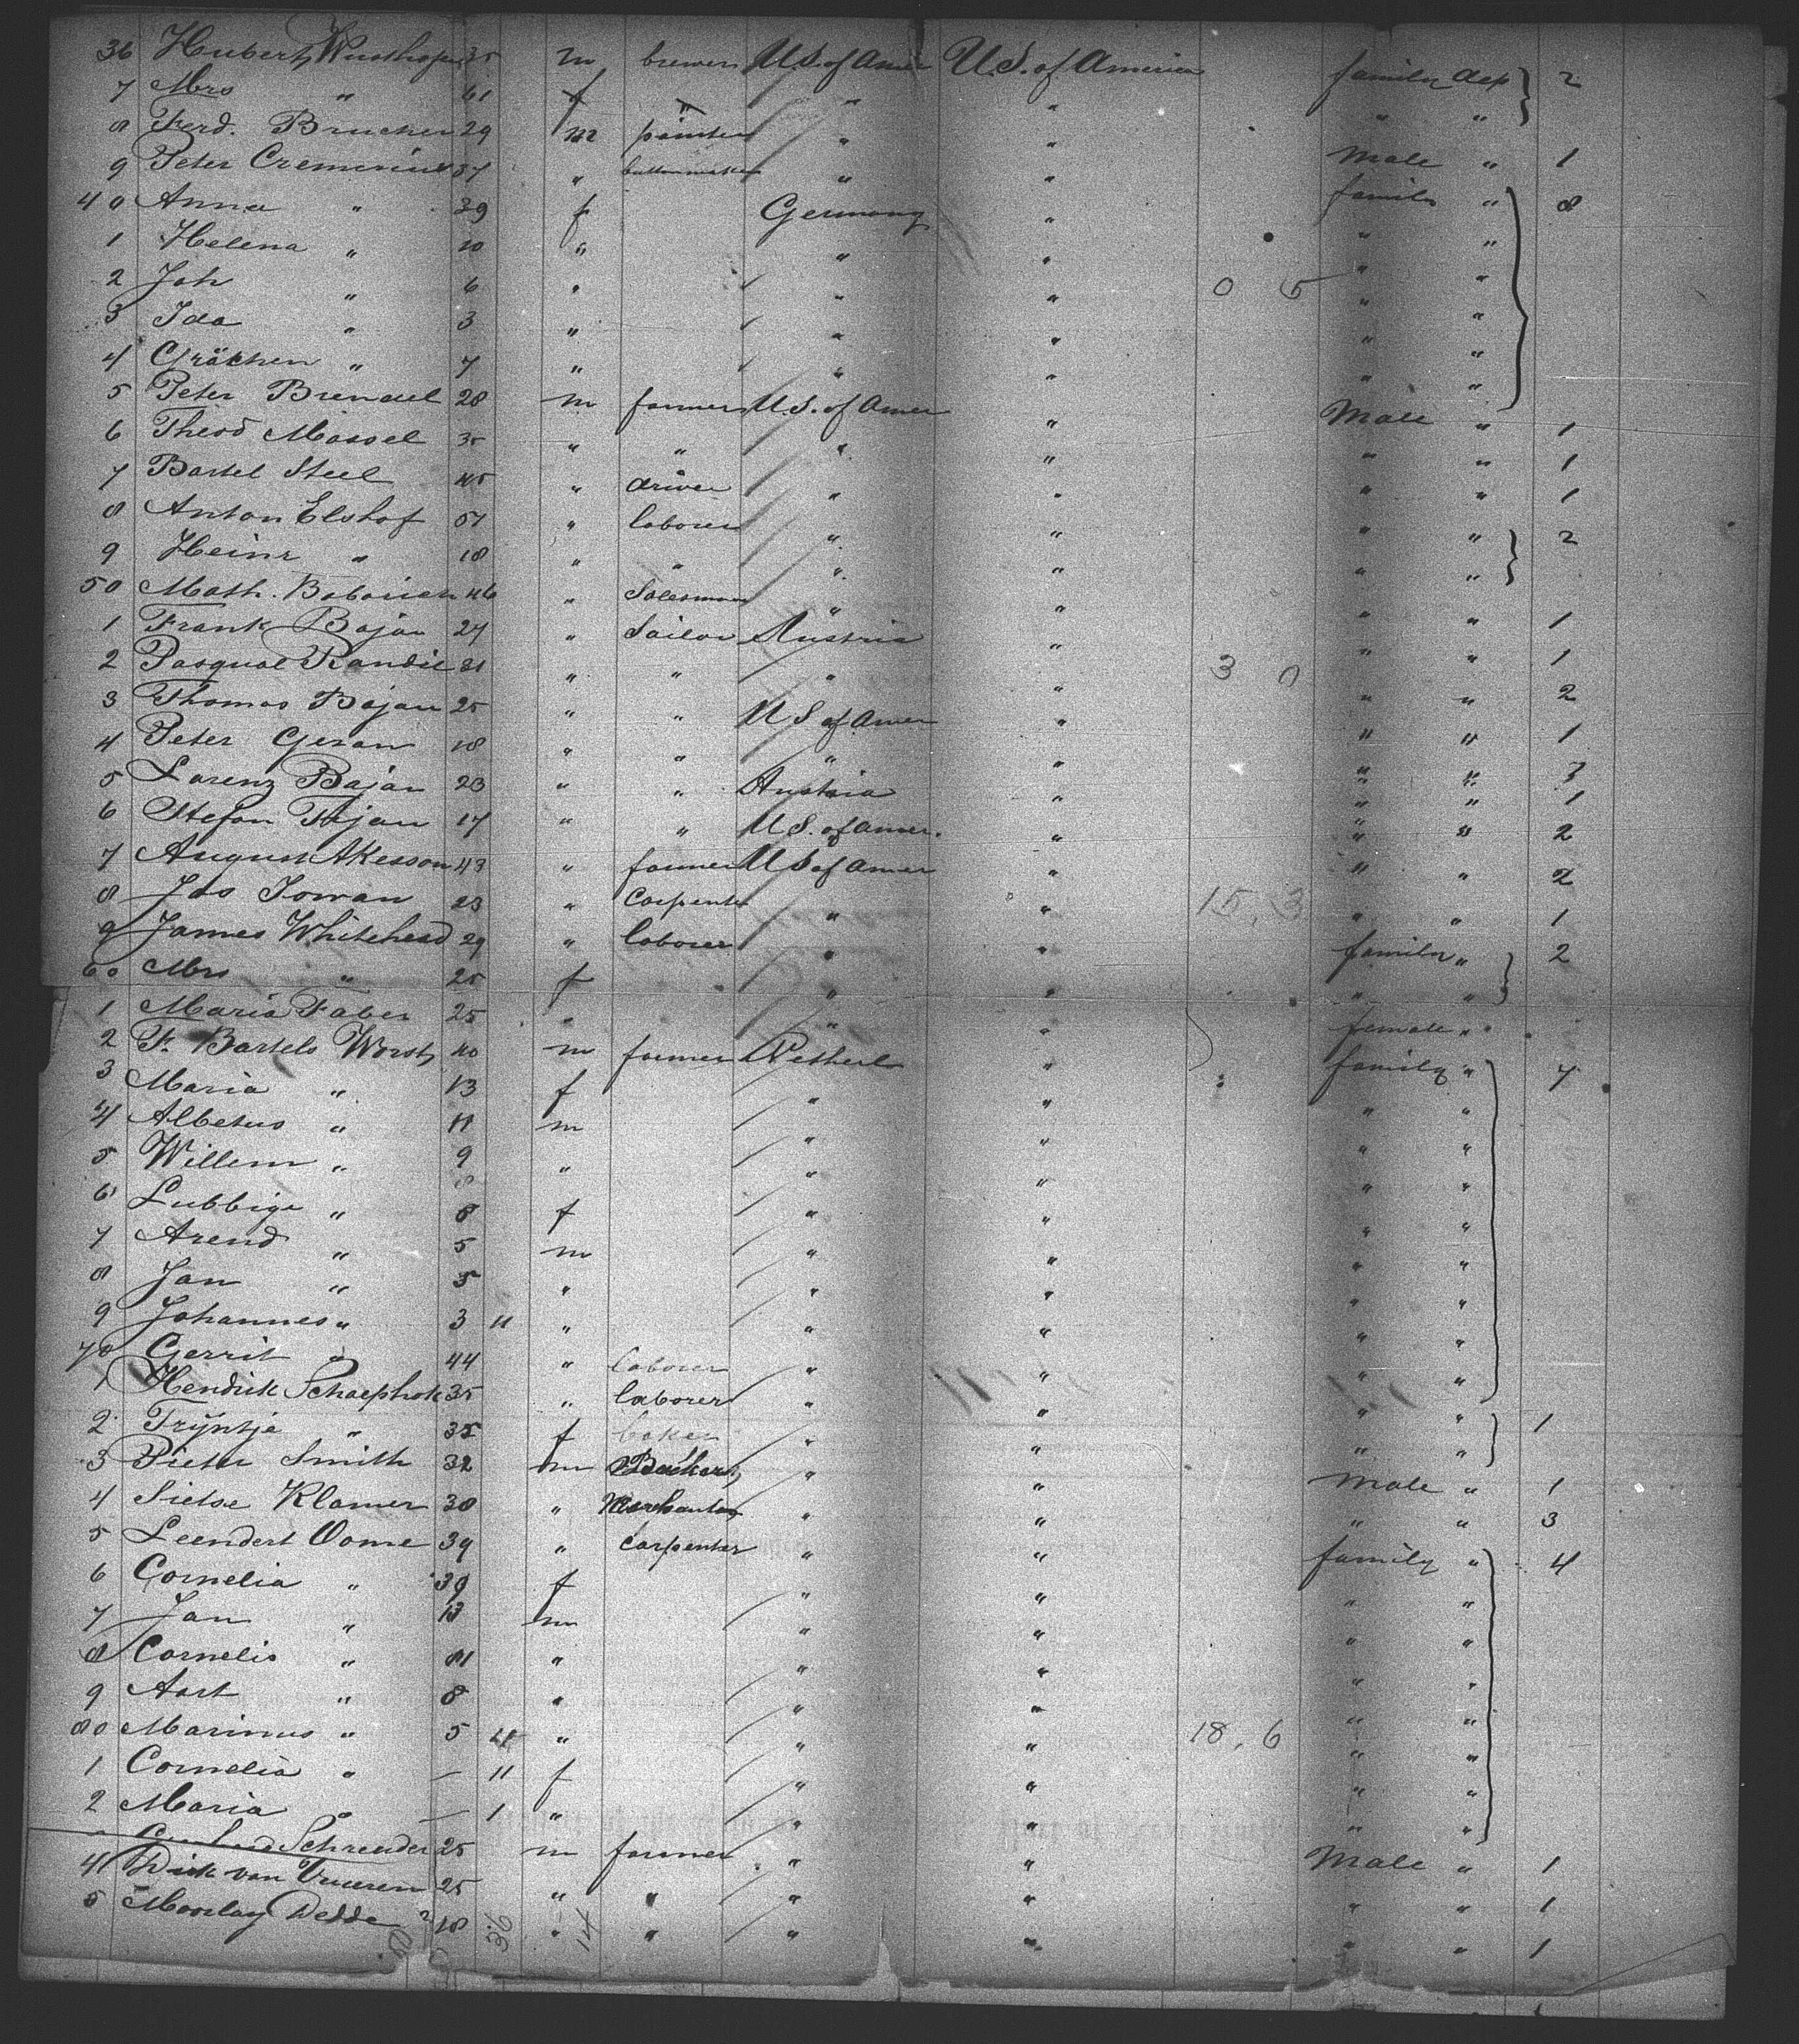 36 Hubert Wusthofen 35 m brewer U.S. of Amer U.S. of America family dep 2
7 Mrs " 61 f " " " " "
8 Ferd. Brucker 29 m painter " " Male " 1
9 Peter Cremerius 37 " buttonmaker " " family " 8
40 Anna " 39 f Germany " " "
1 Helena " 10 " " " " "
2 Joh " 6 " " " 0 5 " "
3 Ida " 3 " " " " "
4 Grächen " 7 " " " " "
5 Peter Brendel 28 m farmer U.S. of Amer " Male " 1
6 Theod Massel 35 " " " " " " 1
7 Bartel Steel 45 " driver " " " " 1
8 Anton Elshof 57 " laborer " " " " 2
9 Heinr " 18 " " " " " "
50 Math. 46 " Salesman " " " " 1
1 Frank Bajan 27 " Sailor Austria " " " 1
2 Pasqual Randic 21 " " " " 3 0 " " 2
3 Thomas Bajan 25 " " U S of Amer " " " 1
4 Peter Geran 18 " " " " " "
5 Lorenz Bajan 23 " " Austria " " " 1
6 Stefan 17 " " U S. of Amer. " " " 2
7 August Akesson 43 " farmer U S of Amer " " " 2
8 Jos Iowan 23 " Carpenter " " 15, 3 " " 1
9 James Whitehead 29 " laborer " " family " 2
60 Mrs " 25 f " " " "
1 Maria Faber 25 " " " female "
2 F. Bartels Worst 40 m farmer Netherl " family " 7
3 Maria " 13 f " " " "
4 Albetus " 11 m " " " "
5 Willem " 9 " " " " "
6 Lubbige " 8 f " " " "
7 Arend " 5 m " " " "
8 Jan " 5 " " " " "
9 Johannes " 3 11 " " " " "
70 Gerrit " 44 " laborer " " " "
1 Hendrik Schaephok 35 " laborer " " " " 1
2 Trijntje " 35 f baker " " " "
3 Pieter Smith 32 m Baker " " Male " 1
4 Sietse Klamer 38 " Merchant " " " " 3
5 Leendert Oome 39 " Carpenter " " family " 4
6 Cornelia " 39 f " " " "
7 Jan " 13 m " " " "
8 Cornelis " 11 " " " " "
9 Aart " 8 " " " " "
80 Marinus " 5 11 " " " 18, 6 " "
1 Cornelia " — 11 f " " " "
2 Maria " — 1 " " " " "
Schreuder 25 m farmer " " Male " 1
4 Dirk van Vuuren 25 " " " " " " 1
5 Dedde 18 " " " " " " 1
36 14